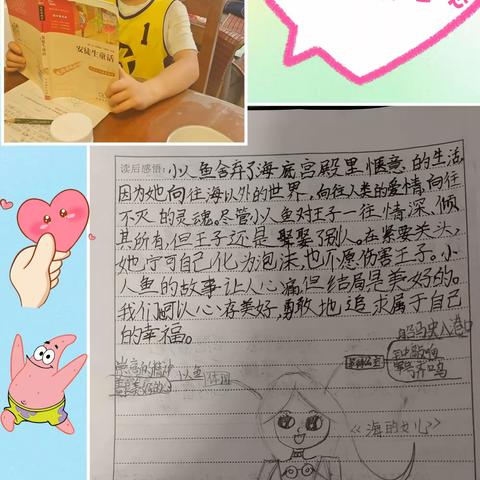 安徒生童话
1
读后感悟:小人鱼舍弃了海底宫殿里惬意的生活,
因为她向往海以外的世界,向往人类的爱情,向往
不灭的灵魂。尽管小人鱼对王子一往情深、倾
其所有,但王子还是娶了别人。在紧要关头,
她宁可自己化为泡沫,也不愿伤害王子。小
人鱼的故事让人心痛但结局是美好的。
我们可以心存美好,勇敢地追求属于自己
的幸福。
《海的女儿》